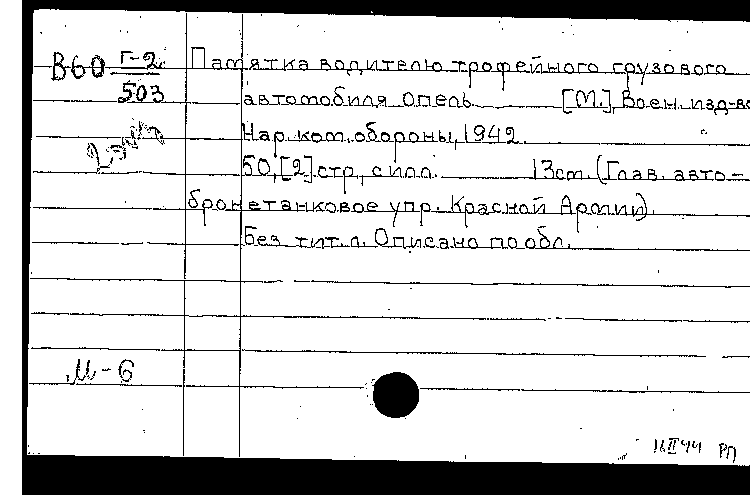 В60 Г-2 Памятка водителю трофейного грузового
503 автомобиля Опель [М.], Воен. изд-во
2 экз Нар. ком. обороны, 1942.
50, [2] стр., с илл. 13 см. (Глав. авто-
бронетанковое упр. Красной Армии).
Без тит. л. Описано по обл.
М-6
16 II 44 РП